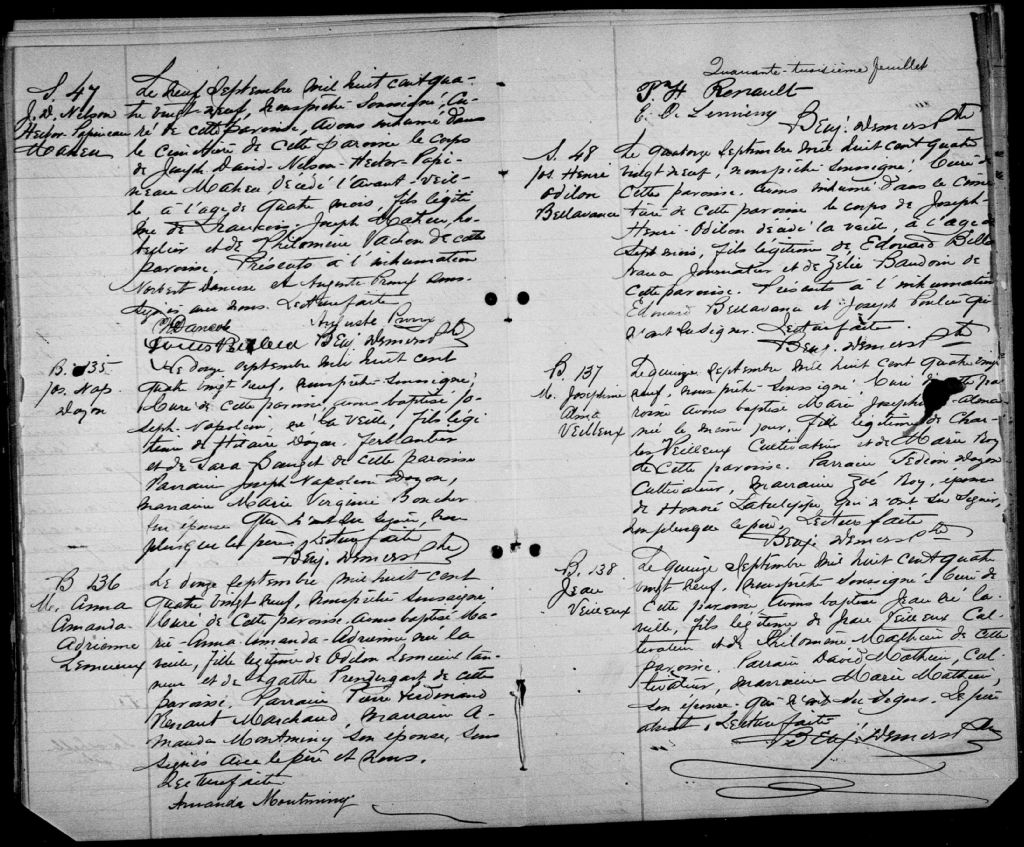 S. 47
J. D. Nelson
Hector Papineau
Maheu
Le neuf Septembre mil huit cent qua-
tre vingt-neuf, nous prêtre soussigné, Cu-
ré de cette paroisse, avons inhumé dans
le Cimetière de cette paroisse le corps
de Joseph David-Nelson-Hector-Papi-
neau Maheu décédé l'avant-veil-
le à l'age de quatre mois, fils légiti
me de François-Joseph Maheu ho-
telier et de Philomène Vachon de cette
paroisse. Présents à l'inhumation
Norbert et Auguste Proux sous-
signés avec nous. Lecture faite
Auguste Proux
Benj. Demers Ptre
B. 135
Jos. Nap.
Doyon
Le douze Septembre mil huit cent
quatre vingt neuf, nous prêtre soussigné,
Curé de cette paroisse avons baptisé Jo-
seph-Napoléon, né la veille, fils légi
time de Hilaire Doyon, ferblantier
et de Sara de cette paroisse
Parrain Joseph Napoléon Doyon,
marraine Marie Virginie Boucher
son épouse qui n'ont su signer, non
plus que le père. Lecture faite
Benj. Demers Ptre
B 136
M. Anna
Amanda
Adrienne
Lemieux
Le douze Septembre mil huit cent
quatre vingt neuf, nous prêtre soussigné,
Curé de cette paroisse, avons baptisé Ma-
rie-Anna-Amanda-Adrienne née la
veille, fille légitime de Odilon Lemieux tan-
neur et de Agathe Prendergast de cette
paroisse. Parrain Pierre Ferdinand
Renault Marchand, marraine A-
manda Montminy son épouse, sous
signés avec le père et nous.
Lecture faite
Amanda Montminy
Quarante-troisième feuillet
P. F. Renault
Benj. Demers Ptre
S. 48
Jos. Henri
Odilon
Bellavance
Le quatorze Septembre mil huit cent quatre
vingt neuf, nous prêtre soussigné, Curé de
cette paroisse, avons inhumé dans le Cime
tière de cette paroisse le corps de Joseph-
Henri-Odilon décédé la veille, à l'age de
Sept mois, fils légitime de Edouard Bella
vance Journalier et de Zélie Baudoin de
cette paroisse. Présents à l'inhumation
Edouard Bellavance et Joseph Poulin qui
n'ont su signer. Lecture faite.
Benj. Demers Ptre
B 137
M. Josephine
Alma
Veilleux
Le quinze Septembre mil huit cent quatre vingt
neuf, nous prêtre soussigné, Curé de cette pa-
roisse avons baptisé Marie Josephine-Alma
née le même jour, fille légitime de Char-
les Veilleux Cultivateur et de Marie Roy
de cette paroisse. Parrain Gédéon Doyon
Cultivateur, marraine Zoé Roy, épouse
de Honoré qui n'ont su signer,
non plus que le père. Lecture faite
Benj. Demers Ptre
B. 138
Jean
Veilleux
Le quinze Septembre mil huit cent quatre
vingt neuf, nous prêtre soussigné, Curé de
cette paroisse, avons baptisé Jean né la
veille, fils légitime de Jean Veilleux Cul-
tivateur et de Philomène Mathieu de cette
paroisse. Parrain David Mathieu, Cul-
tivateur, marraine Marie Mathieu,
son épouse qui n'ont su signer. Le père
absent. Lecture faite
Benj. Demers Ptre